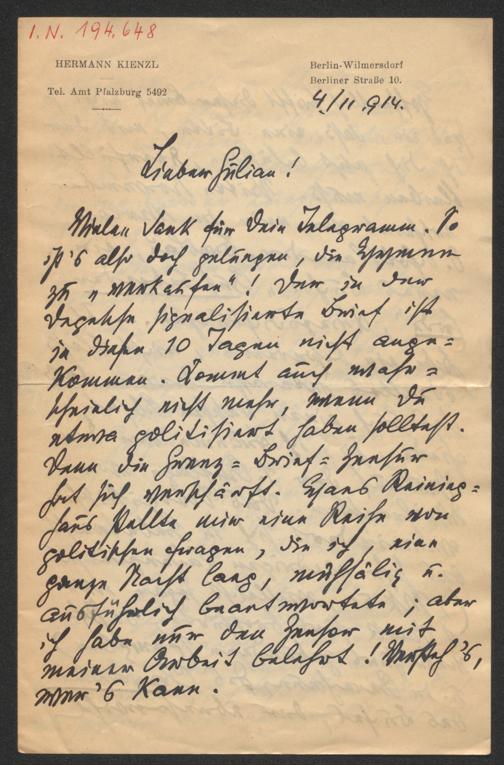 I.N. 194.648
HERMANN KIENZL
Tel. Amt Pfalzburg 5492
Berlin-Wilmersdorf
Berliner Straße 10.
4/11 914.
Lieber Julian!
Vielen Dank für Dein Telegramm. So
ist's also doch gelungen, die
zu "verkaufen"! Der in der
Depesche signalisierte Brief ist
in diesen 10 Tagen nicht ange=
kommen. Kommt auch wahr=
scheinlich nicht mehr, wenn Du
etwa politisiert haben solltest.
Denn die Grenz=Brief=Zensur
hat sich verschärft. Hans Reining=
haus stellte mir eine Reihe von
politischen Fragen, die ich, eine
ganze Nacht lang, mühsälig u.
ausführlich beantwortete; aber
ich habe nur den Zensor mit
meiner Arbeit belehrt! Versteh's,
wer's kann.